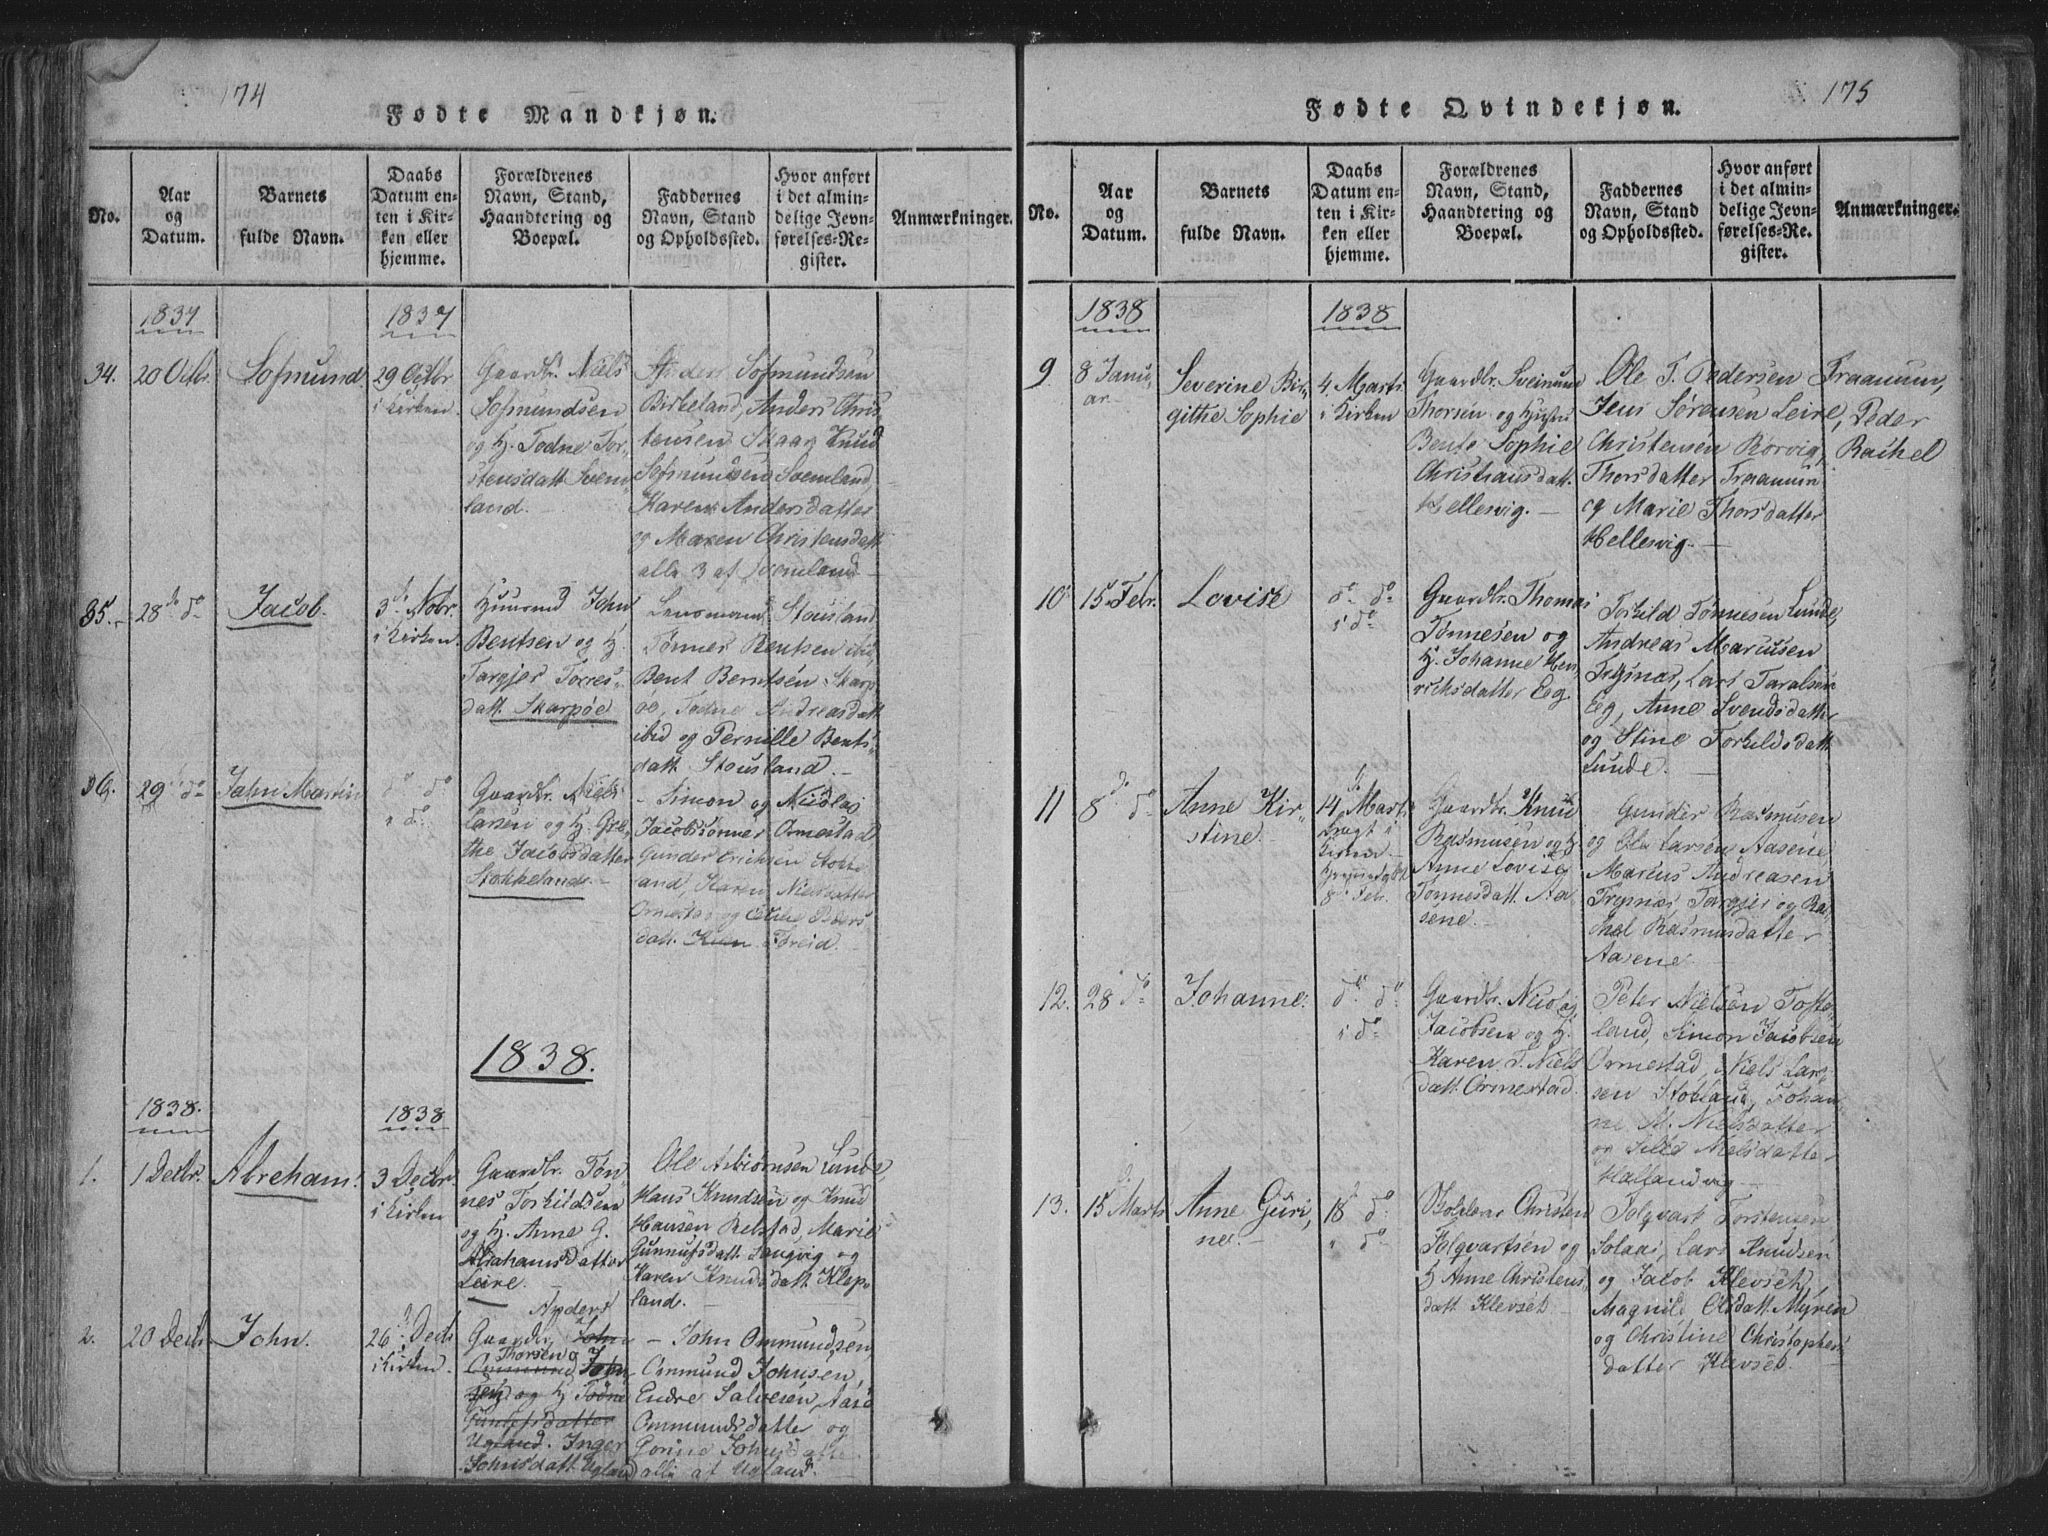 174
Fødte Mandkjøn.
No.
Aar
og
Datum.
Barnets
fulde Navn.
Daabs
Datum en-
ten i Kir-
ken eller
hjemme.
Forældrenes
Navn, Stand,
Haandtering og
Boepæl.
Faddernes
Navn, Stand
og Opholdssted.
Hvor anført
i det almin-
delige Jevn-
førelses-Re-
gister.
Anmærkninger.
1837
1837
34.
20 Octbr.
Sofmund
29 Octbr
i Kirken.
Gaardbr. Niels
Sofmundsen
og H. Todne Tor-
stensdatt Svem-
land.
Anders Sofmundsen
Birkeland, Anders Chris
tensen Skaar Knud
Sofmundsen Svemland,
Karen Andersdatter
og Maren Christensdatt
alle 3 af Svemland
35.
28 do
Jacob.
3 Nobr.
i Kirken.
Huusmd John
Bentsen og H.
Targjer Torres-
datt. Skarpøe
Lensmand Stousland
Tønnes Bentsen ibid,
Bent Berntsen Skarp
øe, Todne Andreasdatt
ibid og Pernille Bents-
datt Stousland.
36.
29 do
Jahn Martin
do do
i do
Gaardbr. Niels
Larsen og H. Gre-
the Jacobsdatter
Stokkeland.
Simon og Nicolai
Jacobsønner Ormestad
Gunder Erichsen Stokke
land, Karen Nielsdatter
Ormestad og Peders
datt. Freid.
1838.
1838.
1838
1.
1 Decbr.
Abreham.
3 Decbr.
i Kirken
Gaardbr. Tøn-
nes Torkildsen
og H. Anne G.
Abrahamsdatter
Leire.
Ole Asbiørnsen Lunde,
Hans Knudsen og Knud
Hansen Relstad, Marie
Gunnufsdatt. Langvig og
Karen Knudsdatt Klep-
land.
2.
20 Decbr
John.
26 Decbr
i Kirken.
Anders
Gaardbr. John
Thorsen og
Ommund John
sen og H Todne
Gunufsdatter
Ugland. Inger
Johnsdatt. Ugland
John Ommundsen,
Ommund Johnsen,
Endre Salvesen, Aase
Ommundsdatter og
Gorine Johnsdatter
alle af Ugland.
175
Fødte Qvindekjøn.
No.
Aar
og
Datum.
Barnets
fulde Navn.
Daabs
Datum en-
ten i Kir-
ken eller
hjemme.
Forældrenes
Navn, Stand,
Haandtering og
Boepæl.
Faddernes
Navn, Stand
og Opholdssted.
Hvor anført
i det almin-
delige Jevn-
førelses-Re-
gister.
Anmærkninger.
1838
1838
9
8 Janu-
ar
Severine Bir-
gitthe Sophie
4. Marts
i Kirken
Gaardbr. Sveinund
Thorsen og Hustru
Bente Sophie
Christiansdatt.
Hellesvig.
Ole T. Pedersen Fraanum,
Jens Sørensen Leire, Peder
Christensen Borvig, Rachel
Thorsdatter Fraanum
og Marie Thorsdatter
Hellesvig.
10
15 Febr.
Lovise
do do
i do
Gaardbr. Thomas
Tønnesen og
H. Johanne Hen-
richsdatter Eeg.
Torkild Tønnesen Lunde,
Andreas Marcusen
Trysnæs, Lars Taralsen
Eeg, Anne Svendsdatter
og Stine Torkildsdatt
Lunde.
11
8 do
Anne Kir-
stine.
14 Marts
bragt i
Kirken
8 Febr.
Gaardbr. Knud
Rasmusen og H.
Anne Lovise
Tønnesdatt. Aa-
sene.
Gunder Rasmusen
og Ole Larsen Aasene,
Marcus Andreasen
Trysnæs Targjer og Ra-
chel Rasmusdatter
Aasene
12.
28 do
Johanne.
do do
i do
Gaardbr. Nicolai
Jacobsen og H.
Karen T. Niels
datt. Ormestad.
Peter Nielsen Tofte-
land, Simon Jacobsen
Ormestad, Niels Lar-
sen Stokland, Johan-
ne M. Nielsdatter
og Sille Nielsdatter
Hallandvig
13.
15 Marts
Anne Guri-
ne.
18 do
i do
Christen
Folqvartsen og
H Anne Christens-
datt Klevset
Folqvart Torstensen
Solaas, Lars Knudsen
og Jacob Klevset,
Magnild Olsdatt. Myren
og Christine Christophers
datter Klevset.